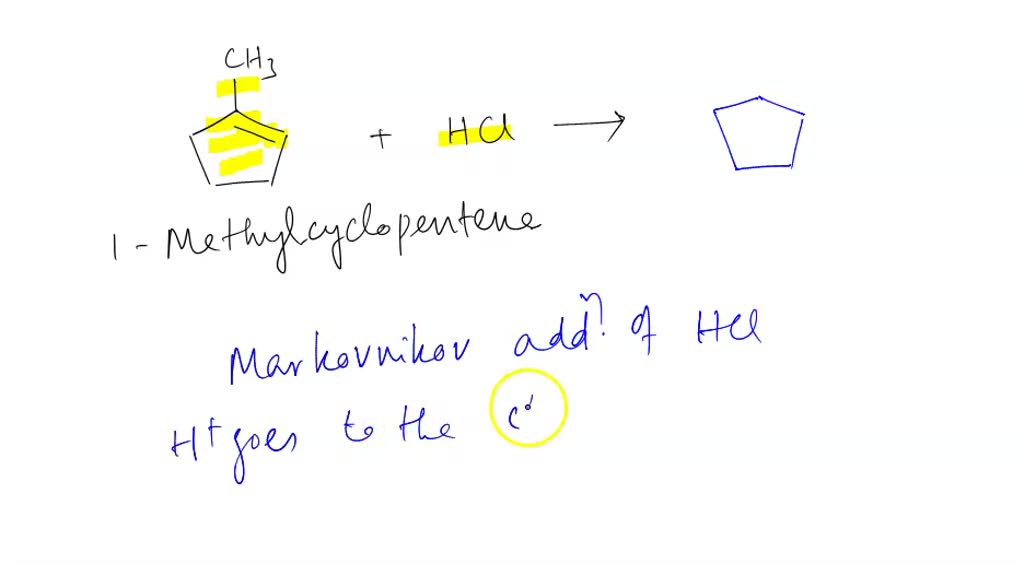 CH3
+ HCl →
1-Methylcyclopentene
Markovnikov addn. of HCl
H+ goes to the